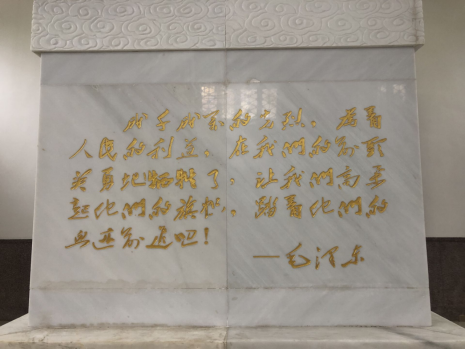 成千成万的先烈，为着
人民的利益，在我們的前头
英勇地牺牲了，让我們高举
起他們的旗帜，踏着他們的
血迹前进吧！
—毛泽东